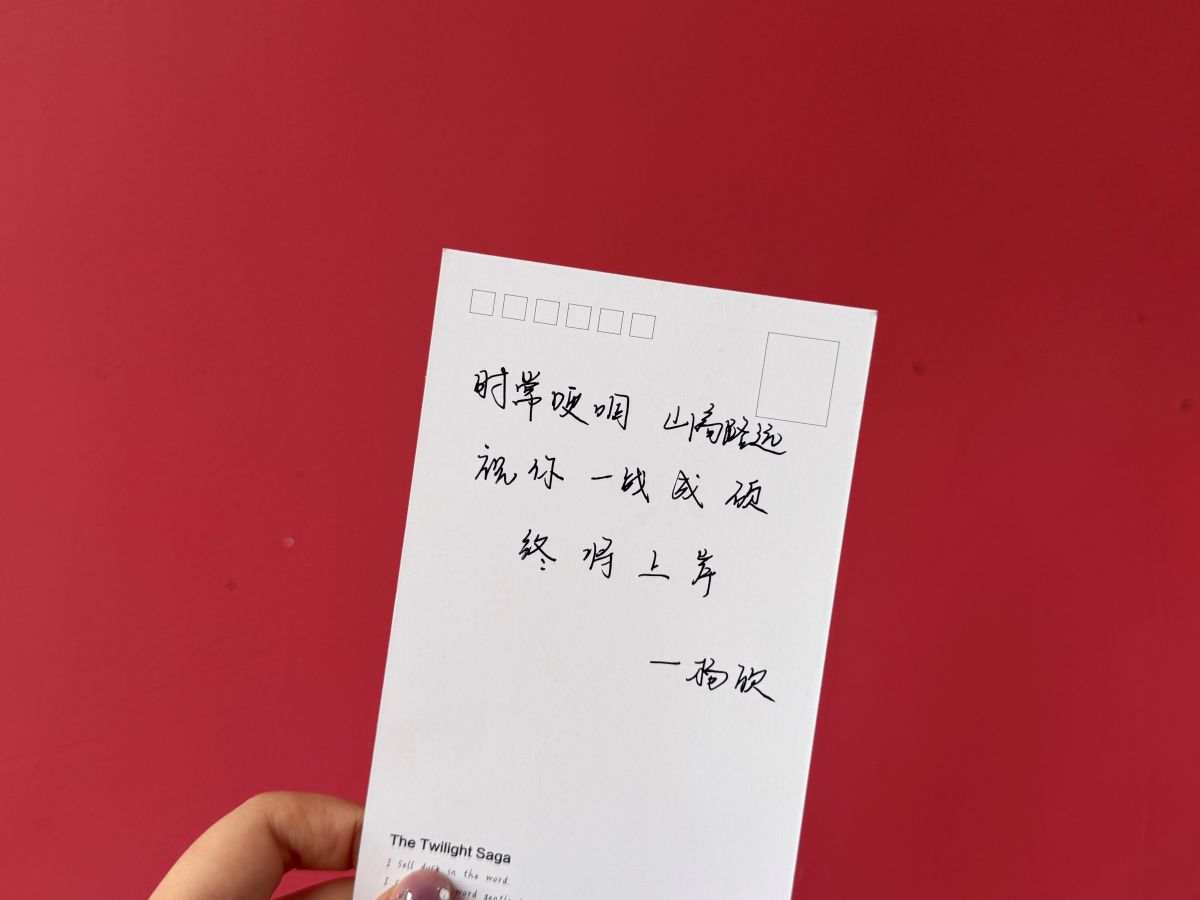 时常哽咽 山高路远
祝你一战成硕
终将上岸
—杨欣
The Twilight Saga
I sell dusk in the word.
word gentle